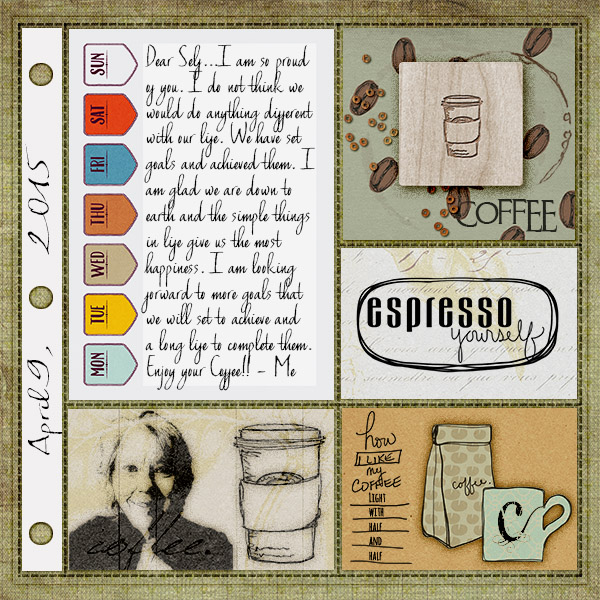 April 9, 2015
SUN
SAT
FRI
THU
WED
TUE
MON
Dear Self...I am so proud
of you. I do not think we
would do anything different
with our life. We have set
goals and achieved them. I
am glad we are down to
earth and the simple things
in life give us the most
happiness. I am looking
forward to more goals that
we will set to achieve and
a long life to complete them.
Enjoy your Coffee!! - Me
COFFEE
espresso
yourself
soumettre ou que vous
coffee.
how
I LIKE
my
COFFEE
LIGHT
WITH
HALF
AND
HALF
coffee.
C